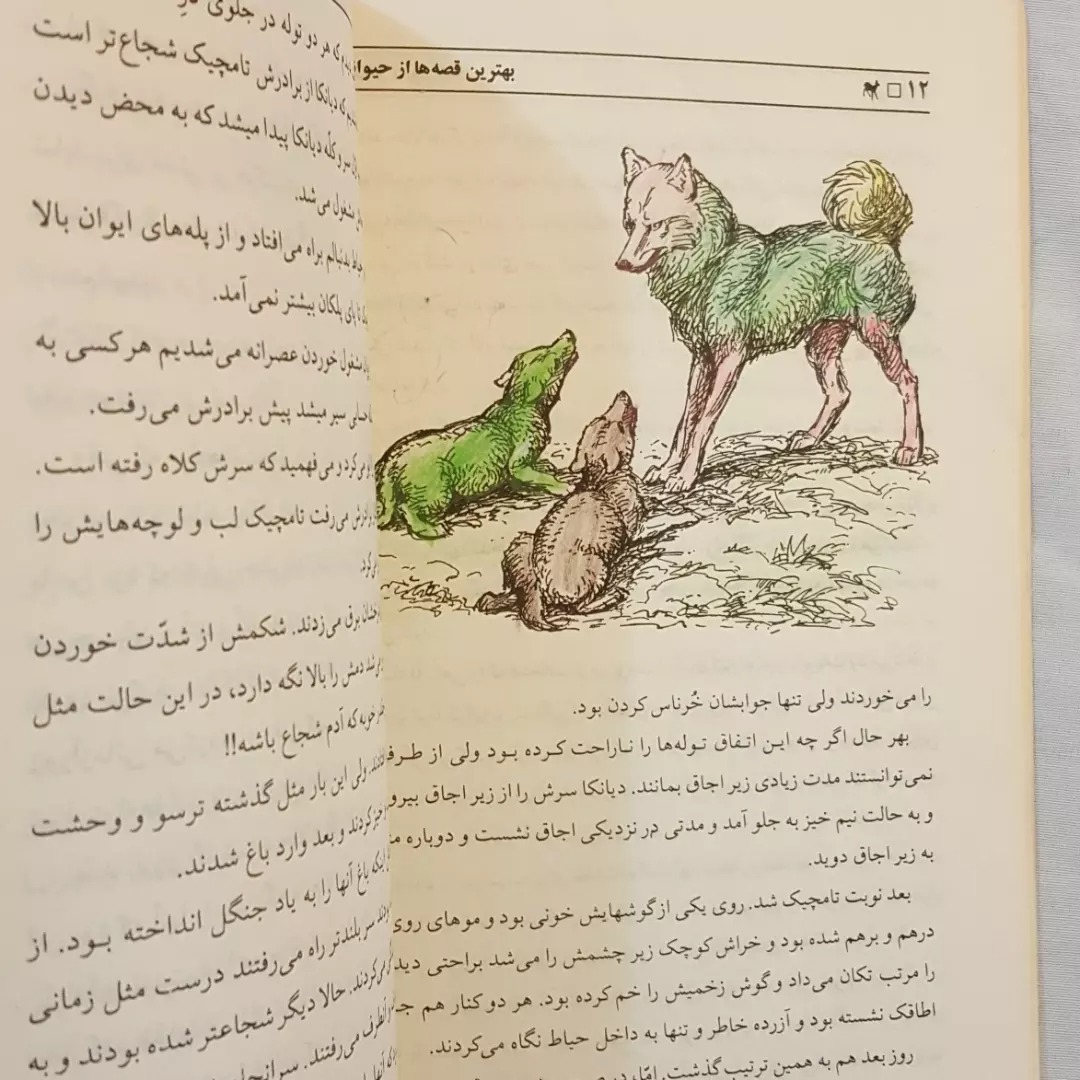 ۱۲
بهترین قصه‌ها از
را می‌خوردند ولی تنها جوابشان خُرناس کردن بود.
بهر حال اگر چه این اتفاق توله‌ها را ناراحت کرده بود ولی از
نمی‌توانستند مدت زیادی زیر اجاق بمانند. دیانکا سرش را از زیر اجاق
و به حالت نیم خیز به جلو آمد و مدتی در نزدیکی اجاق نشست و دوباره
به زیر اجاق دوید.
بعد نوبت تامچیک شد. روی یکی از گوشهایش خونی بود و موهای روی
درهم و برهم شده بود و خراش کوچک زیر چشمش را می‌شد براحتی
را مرتب تکان می‌داد و گوش زخمیش را خم کرده بود. هر دو کنار هم
اطاقک نشسته بود و آزرده خاطر و تنها به داخل حیاط نگاه می‌کردند.
روز بعد هم به همین ترتیب گذشت. امّا، در
که هر دو توله در جلوی
که دیانکا از برادرش تامچیک شجاع‌تر است
سر و کلّه دیانکا پیدا میشد که به محض دیدن
مشغول می‌شد.
بدنبالم براه می‌افتاد و از پله‌های ایوان بالا
تا پای پلکان بیشتر نمی‌آمد.
مشغول خوردن عصرانه می‌شدیم هر کسی به
سیر میشد پیش برادرش می‌رفت.
می‌کرد و می‌فهمید که سرش کلاه رفته است.
می‌رفت تامچیک لب و لوچه‌هایش را
برق می‌زدند. شکمش از شدّت خوردن
دمش را بالا نگه دارد، در این حالت مثل
خوبه که آدم شجاع باشه!!
ولی این بار مثل گذشته ترسو و وحشت
کردند و بعد وارد باغ شدند.
اینکه باغ آنها را به یاد جنگل انداخته بود. از
سر بلندتر راه می‌رفتند درست مثل زمانی
می‌کردند. حالا دیگر شجاعتر شده بودند و به
می‌رفتند.